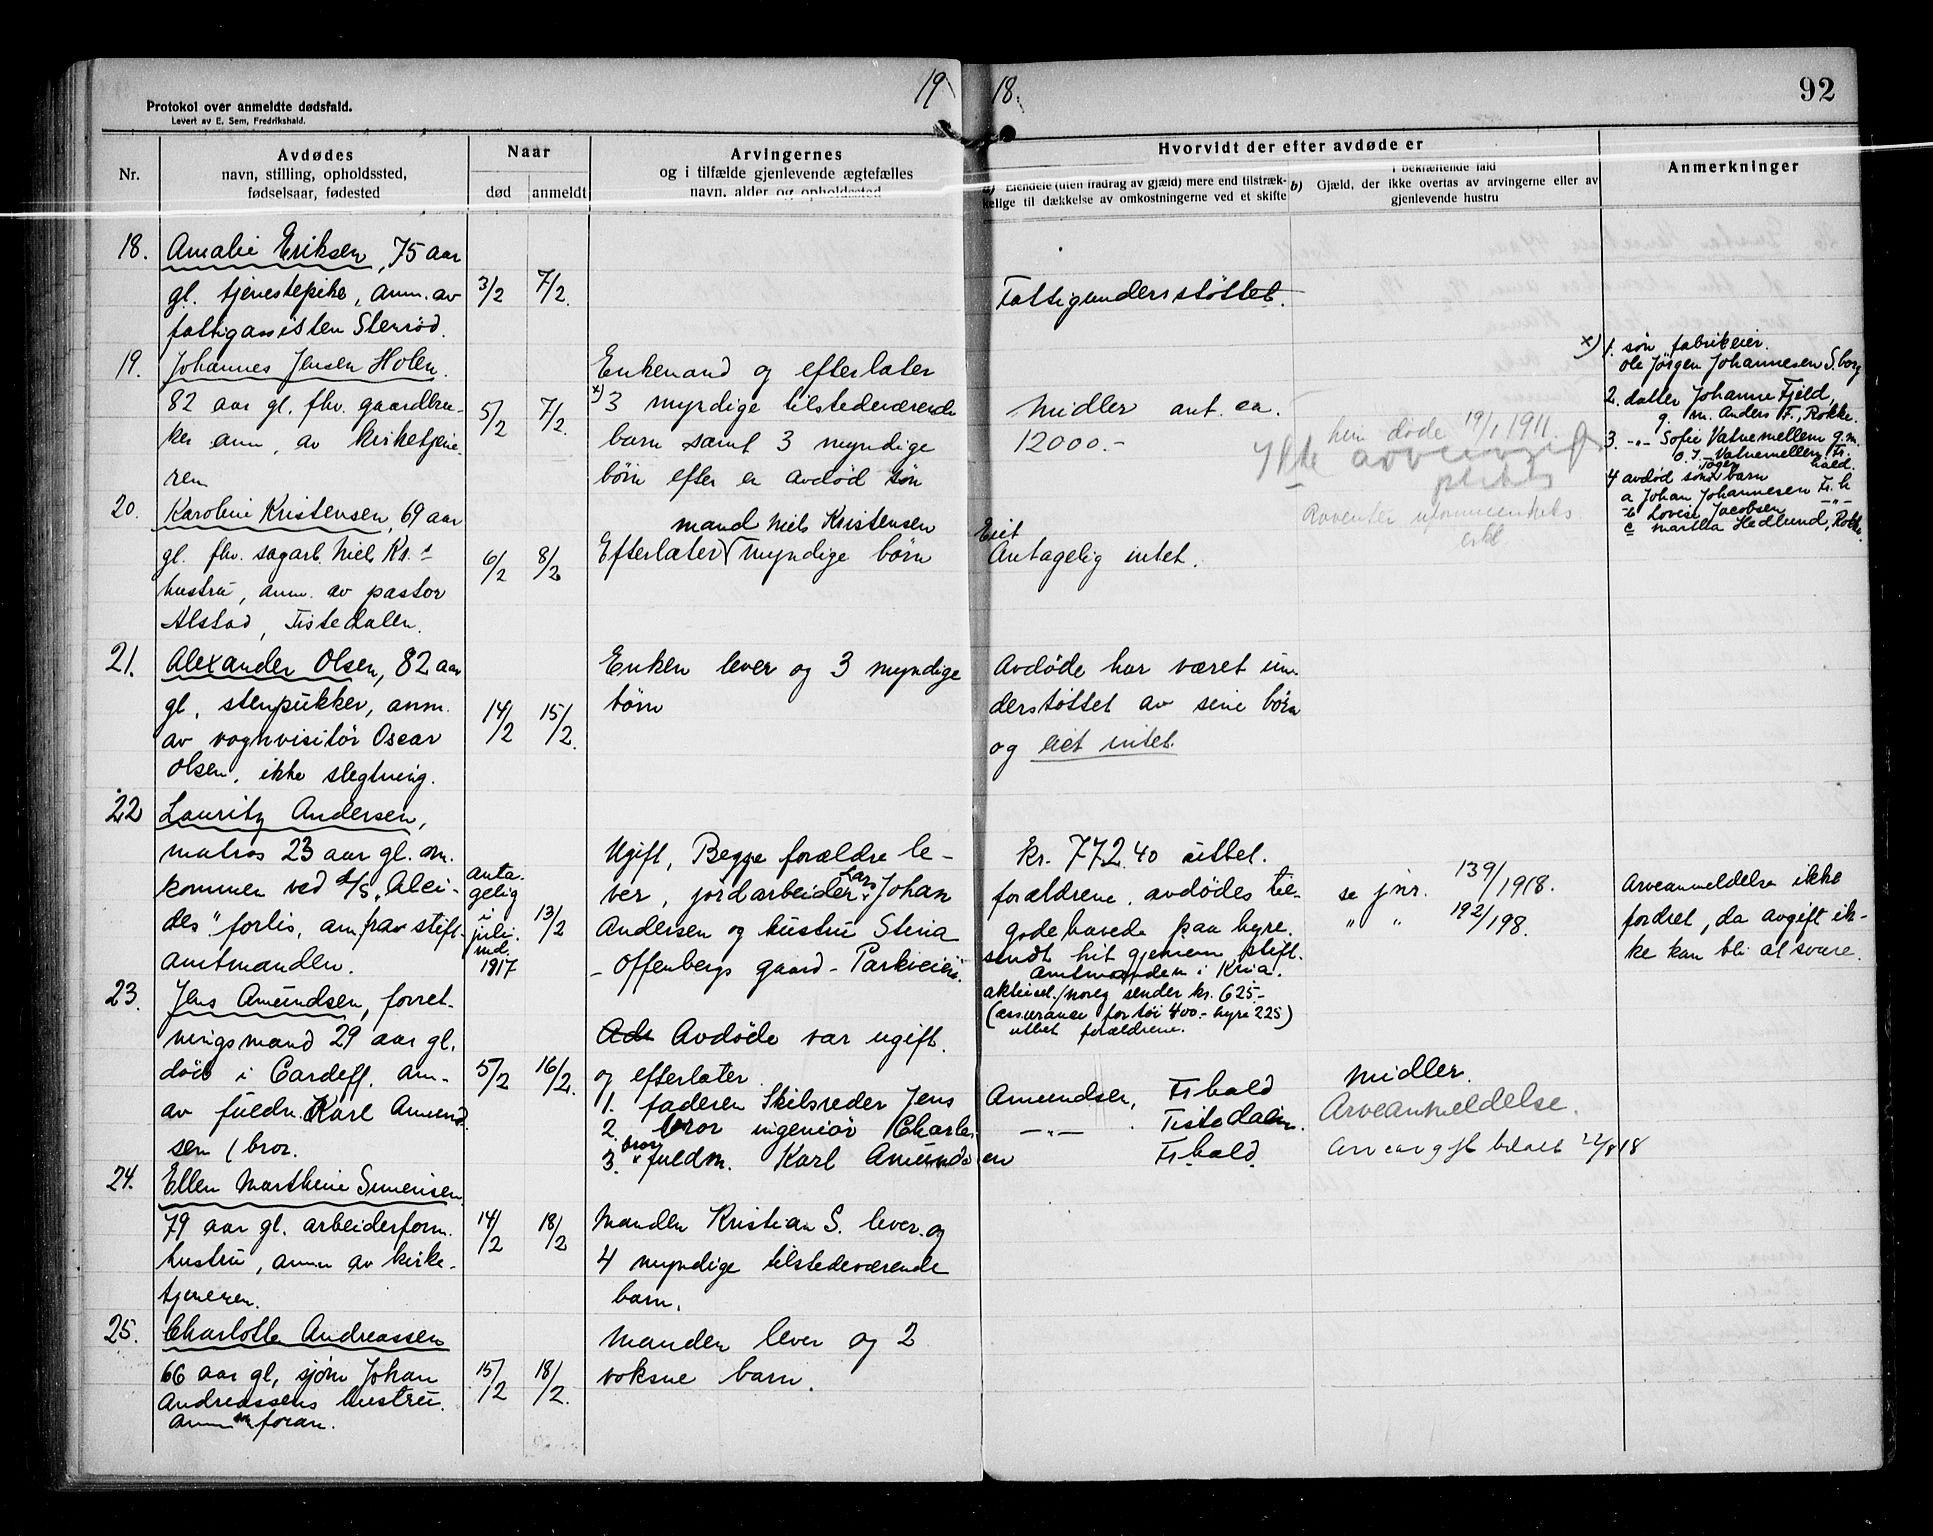 1918.
92
Protokol over anmeldte dødsfald.
Levert av E. Sem, Fredrikshald.
Nr.
Avdødes
navn, stilling, opholdssted,
fødselsaar, fødested
Naar
død
anmeldt
Arvingernes
og i tilfælde gjenlevende ægtefælles
navn, alder og opholdssted
Hvorvidt der efter avdøde er
a) Eiendele (uten fradrag av gjæld) mere end tilstræk-
kelige til dækkelse av omkostningerne ved et skifte
I bekræftende fald
b) Gjæld, der ikke overtas av arvingerne eller av
gjenlevende hustru
Anmerkninger
18.
Amalie Eriksen, 75 aar
gl. tjenestepike, anm. av
fattigassisten Stenrød.
3/2
7/2.
Fattigunderstøttet.
19.
Johannes Jensen Holen.
82 aar gl. fhv. gaardbru-
ker anm. av kirketjene-
ren
5/2
7/2.
Enkemand og efterlater
x) 3 myndige tilstedeværende
barn samt 3 myndige
børn efter en avdød søn
Midler ant. ca.
12000.-
døde 19/1 1911.
x) 1. søn fabrikeier.
Ole Jørgen Johannesen S.borg
2. datter Johanne Fjeld,
g. m. Anders F., Rokke.
3. -"- Sofie Vatnemellem g.m.
O. J. Vatnemellem. Fr.
hald.
4 avdød søns barn
a Johan Johannesen Fr.h
b Lovise Jacobsen -"-
c Martha Hedlund, Rokke.
20.
Karoline Kristensen, 69 aar
gl. fhv. sagarb. Niels Kr.s
hustru, anm. av pastor
Alstad, Tistedalen.
6/2
8/2
mand Niels Kristensen
Efterlater myndige børn
Eiet
Antagelig intet.
21.
Alexander Olsen, 82 aar
gl. stenpukker, anm.
av vognvisitør Oscar
Olsen, ikke slegtning.
14/2
15/2.
Enken lever og 3 myndige
børn
Avdøde har været un-
derstøttet av sine børn
og eiet intet.
22
Lauritz Andersen,
matros 23 aar gl. om-
kommen ved S/S "Alci-
des" forlis, anm. av stift-
amtmanden.
anta-
gelig
i
juli
md.
1917
13/2
Ugift, Begge forældre le-
ver, jordarbeider Lars Johan
Andersen og hustru Stina
- Offenbergs gaard - Parkveien.
kr. 772.40 utbet.
forældrene. avdødes til-
godehavede paa hyre.
sendt hit gjennem stift.
amtmanden i Kria.
aktiesel. Noreg sender kr. 625.-
(assuranse for tøi 400.- hyre 225)
utbet forældrene.
se jnr. 139/1918.
" " 192/198.
Arveanmeldelse ikke
fordret, da avgift ik-
ke kan bli at svare.
23.
Jens Amundsen, forret-
ningsmand 29 aar gl.
død i Cardeff. am-
av fuldm. Karl Amund-
sen (bror.
5/2
16/2.
Avdøde var ugift.
og efterlater
1. faderen Skibsreder Jens Amundsen, Fr.hald
2. bror ingeniør Charles -"- Tistedalen.
3. bror fuldm. Karl Amundsen Fr.hald.
Midler.
Arveanmeldelse.
Arveavgift betalt 22/8 18
24.
Ellen Marthine Simensen
79 aar gl. arbeiderform.
hustru, anm av kirke-
tjeneren.
14/2
18/2
Manden Kristian S. lever og
4 myndige tilstedeværende
barn.
25.
Charlotte Andreassen
66 aar gl, sjøm Johan
Andreassens hustru.
Anm som foran.
15/2
18/2.
Manden lever og 2
voksne barn.